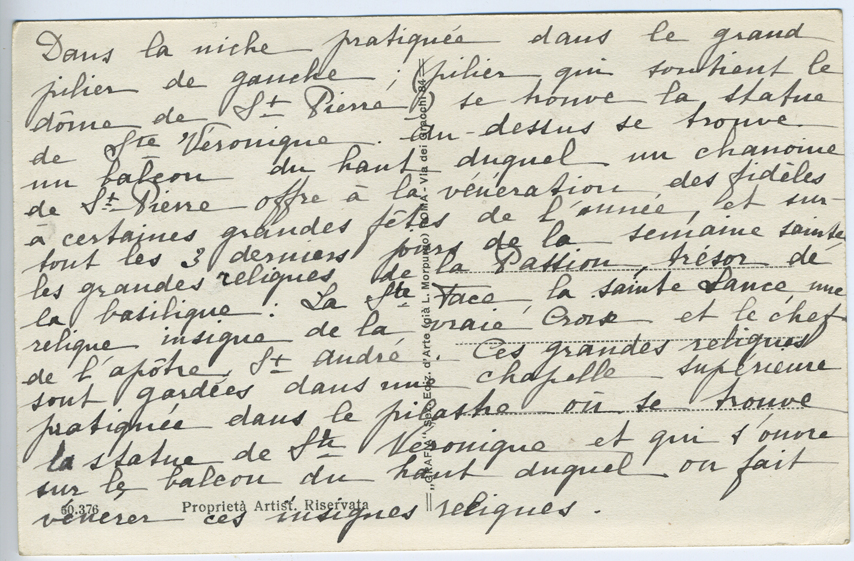 Dans la niche pratiquée dans le grand
pilier de gauche ; (pilier qui soutient le
dôme de St Pierre) se trouve la statue
de Ste Véronique. Au-dessus se trouve
un balcon du haut duquel un chanoine
de St Pierre offre à la vénération des fidèles
à certaines grandes fêtes de l'année, et sur-
tout les 3 derniers jours de la semaine sainte
les grandes reliques de la Passion, trésor de
la basilique : La Ste Face, la sainte Lance, une
relique insigne de la vraie Croix et le chef
de l'apôtre St André. Ces grandes reliques
sont gardées dans une chapelle supérieure
pratiquée dans le pilastre où se trouve
la statue de Ste Véronique et qui s'ouvre
sur le balcon du haut duquel on fait
vénérer ces insignes reliques.
50.376 Proprietà Artist. Riservata
"GRAFIA" Sez. Ediz. d'Arte (già L. Morpurgo) ROMA - Via dei Gracchi 84